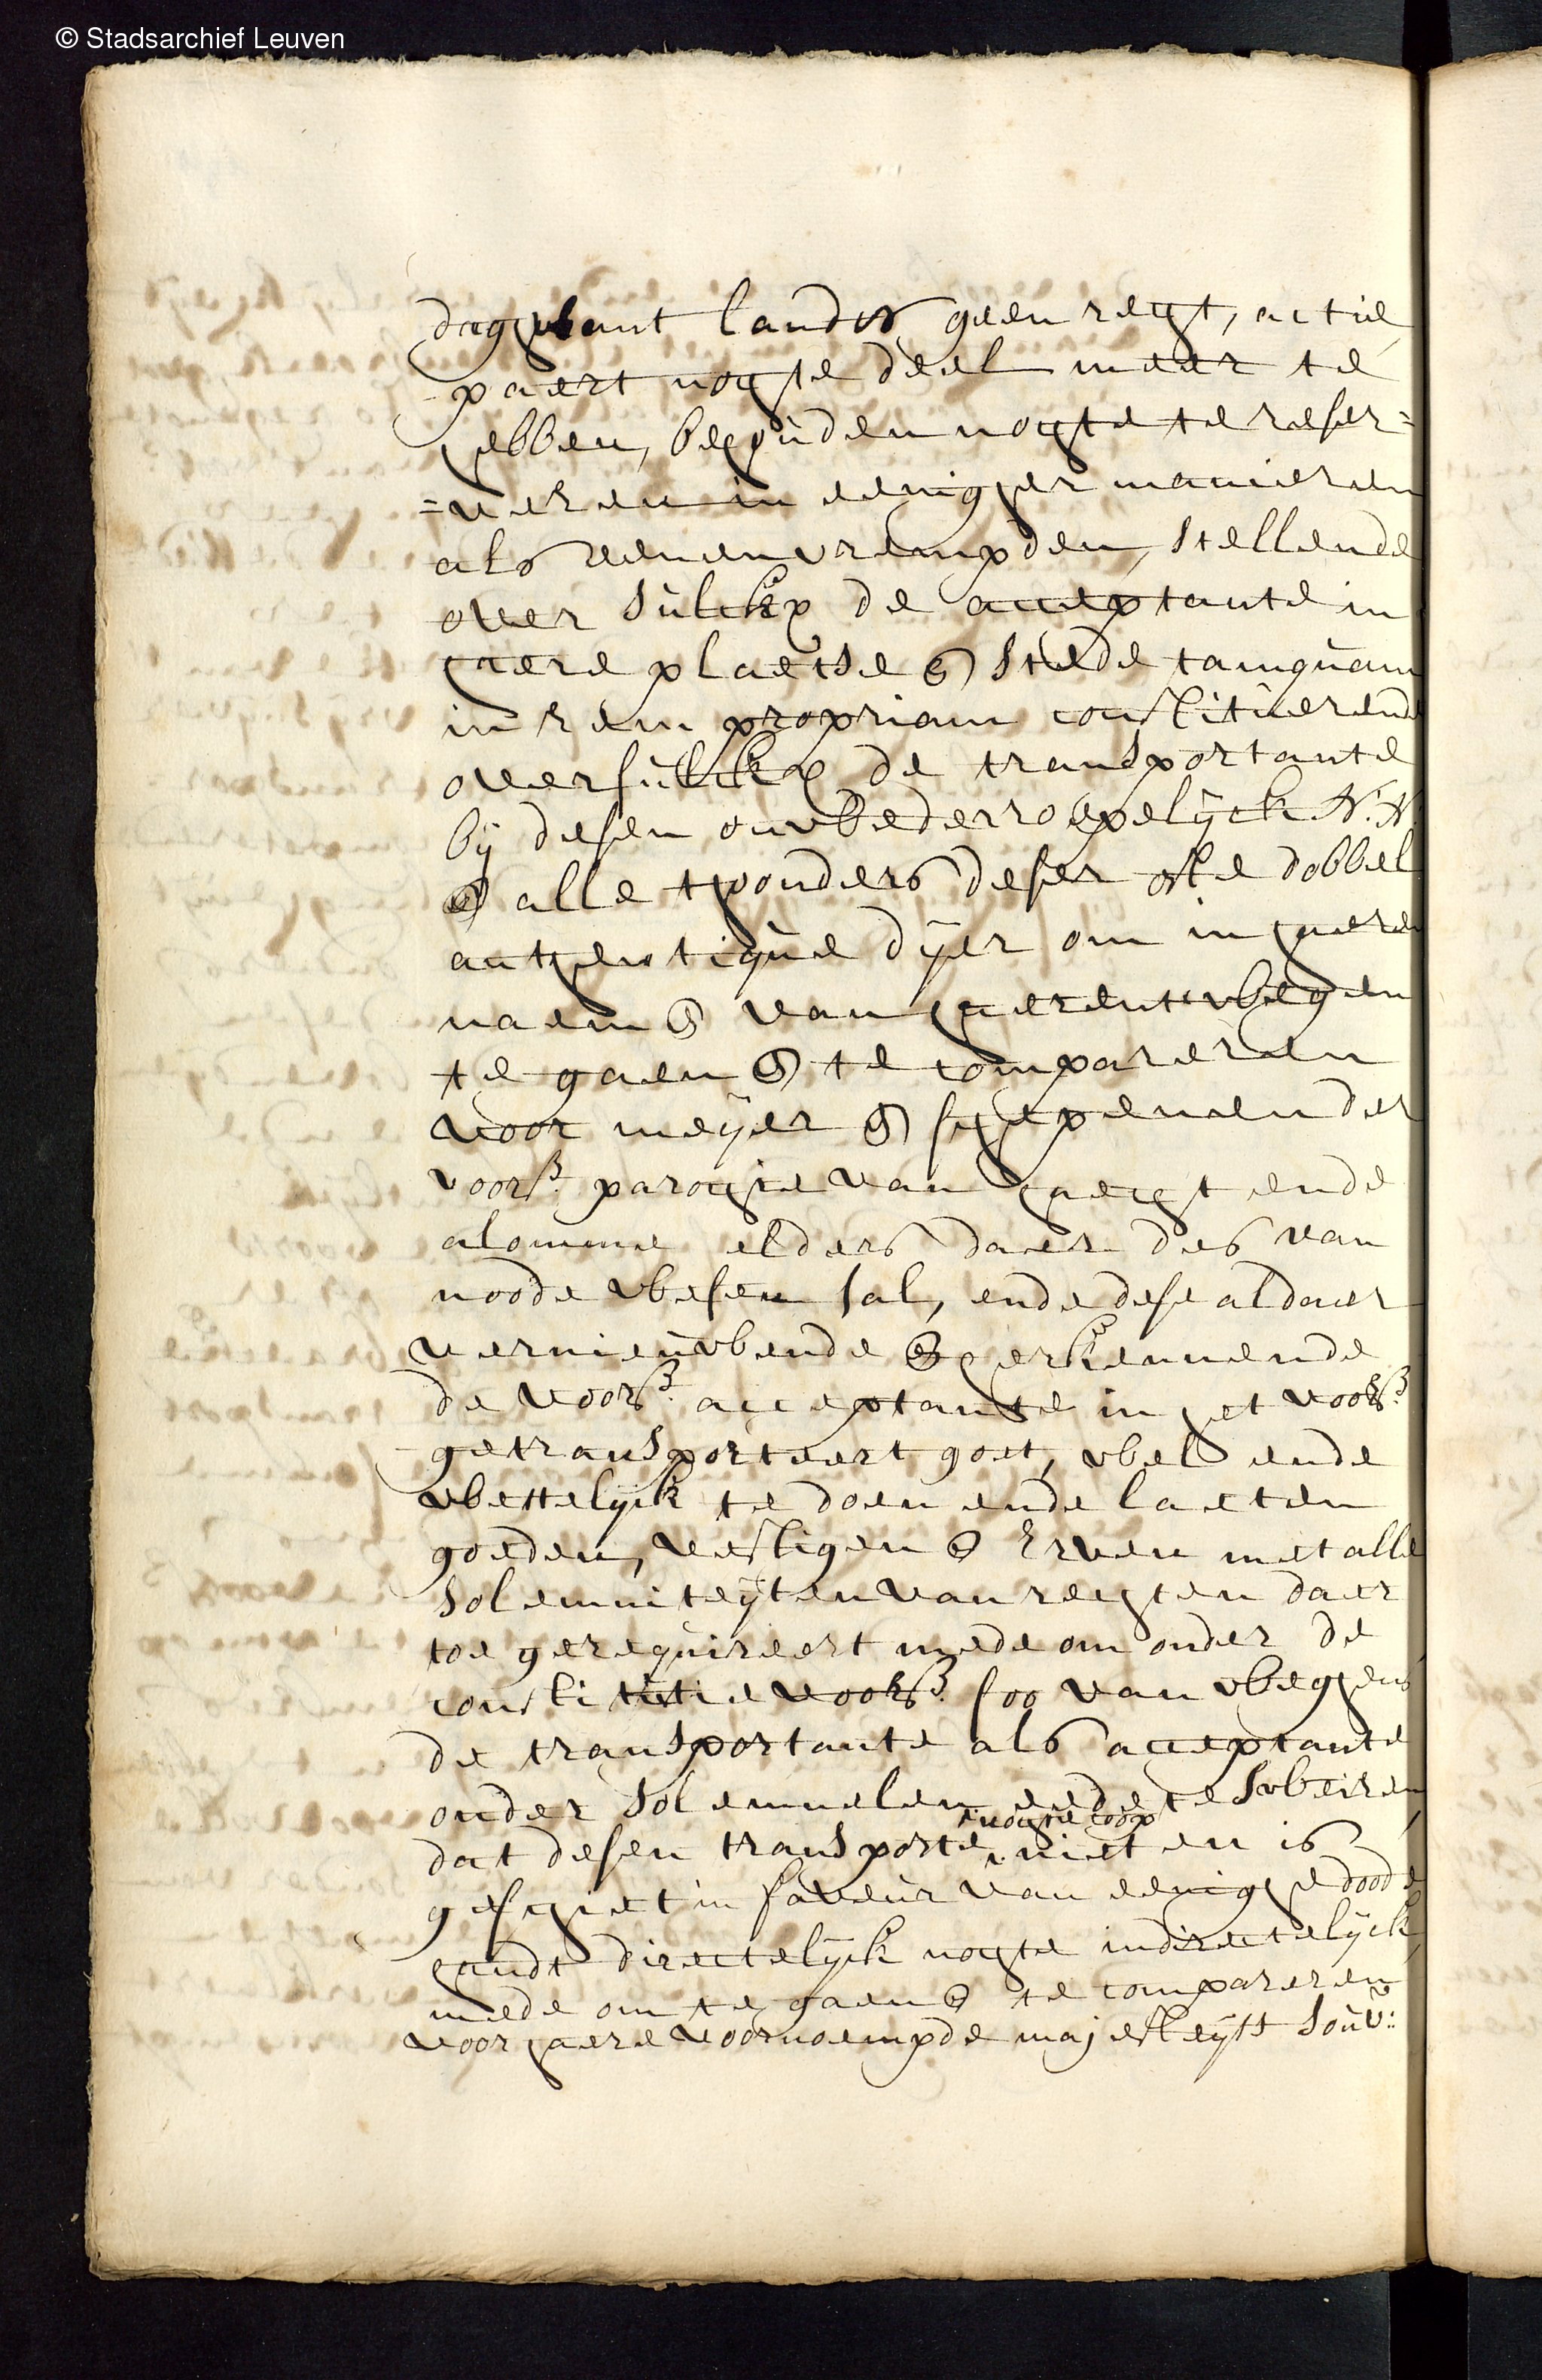 © Stadsarchief Leuven
daghwant landts geen reght, actie
paert noghte deel meer te
hebben, behouden noghte te reser=
=veren in eenigher manieren
als eenen vrempden, stellende
over sulckx de acceptante in
haere plaetse en stede tamquam
in rem propriam constituerende
oversulckx de transportante
bij desen onwederroepelijck N: N:
en alle thonders deser ofte dobbel
authentique dijer om in haeren
naem en van haerentwegen
te gaen en te compareren
voor meijer en schepenen der
voors. parochie van haecht ende
alomme elders daer des van
noode wesen sal, ende dese aldaer
vernieuwende en herkennende
de voors. acceptante in het voors.
getransporteert goet, wel ende
wettelijck te doen ende laeten
goeden, vestigen en Erven met alle
solemniteijten van reghten daer
toe gerequireert mede om onder de
constitutie voors. soo van weghens
de transportante als acceptante
onder solemnelen eede te sweiren
dat desen transporte noghte coop niet en is
geschiet in faveur van eenighe doode
handt directelijck noghte indirectelijck
mede om te gaen en te compareren
voor haere voornoempde majesteijts souv: